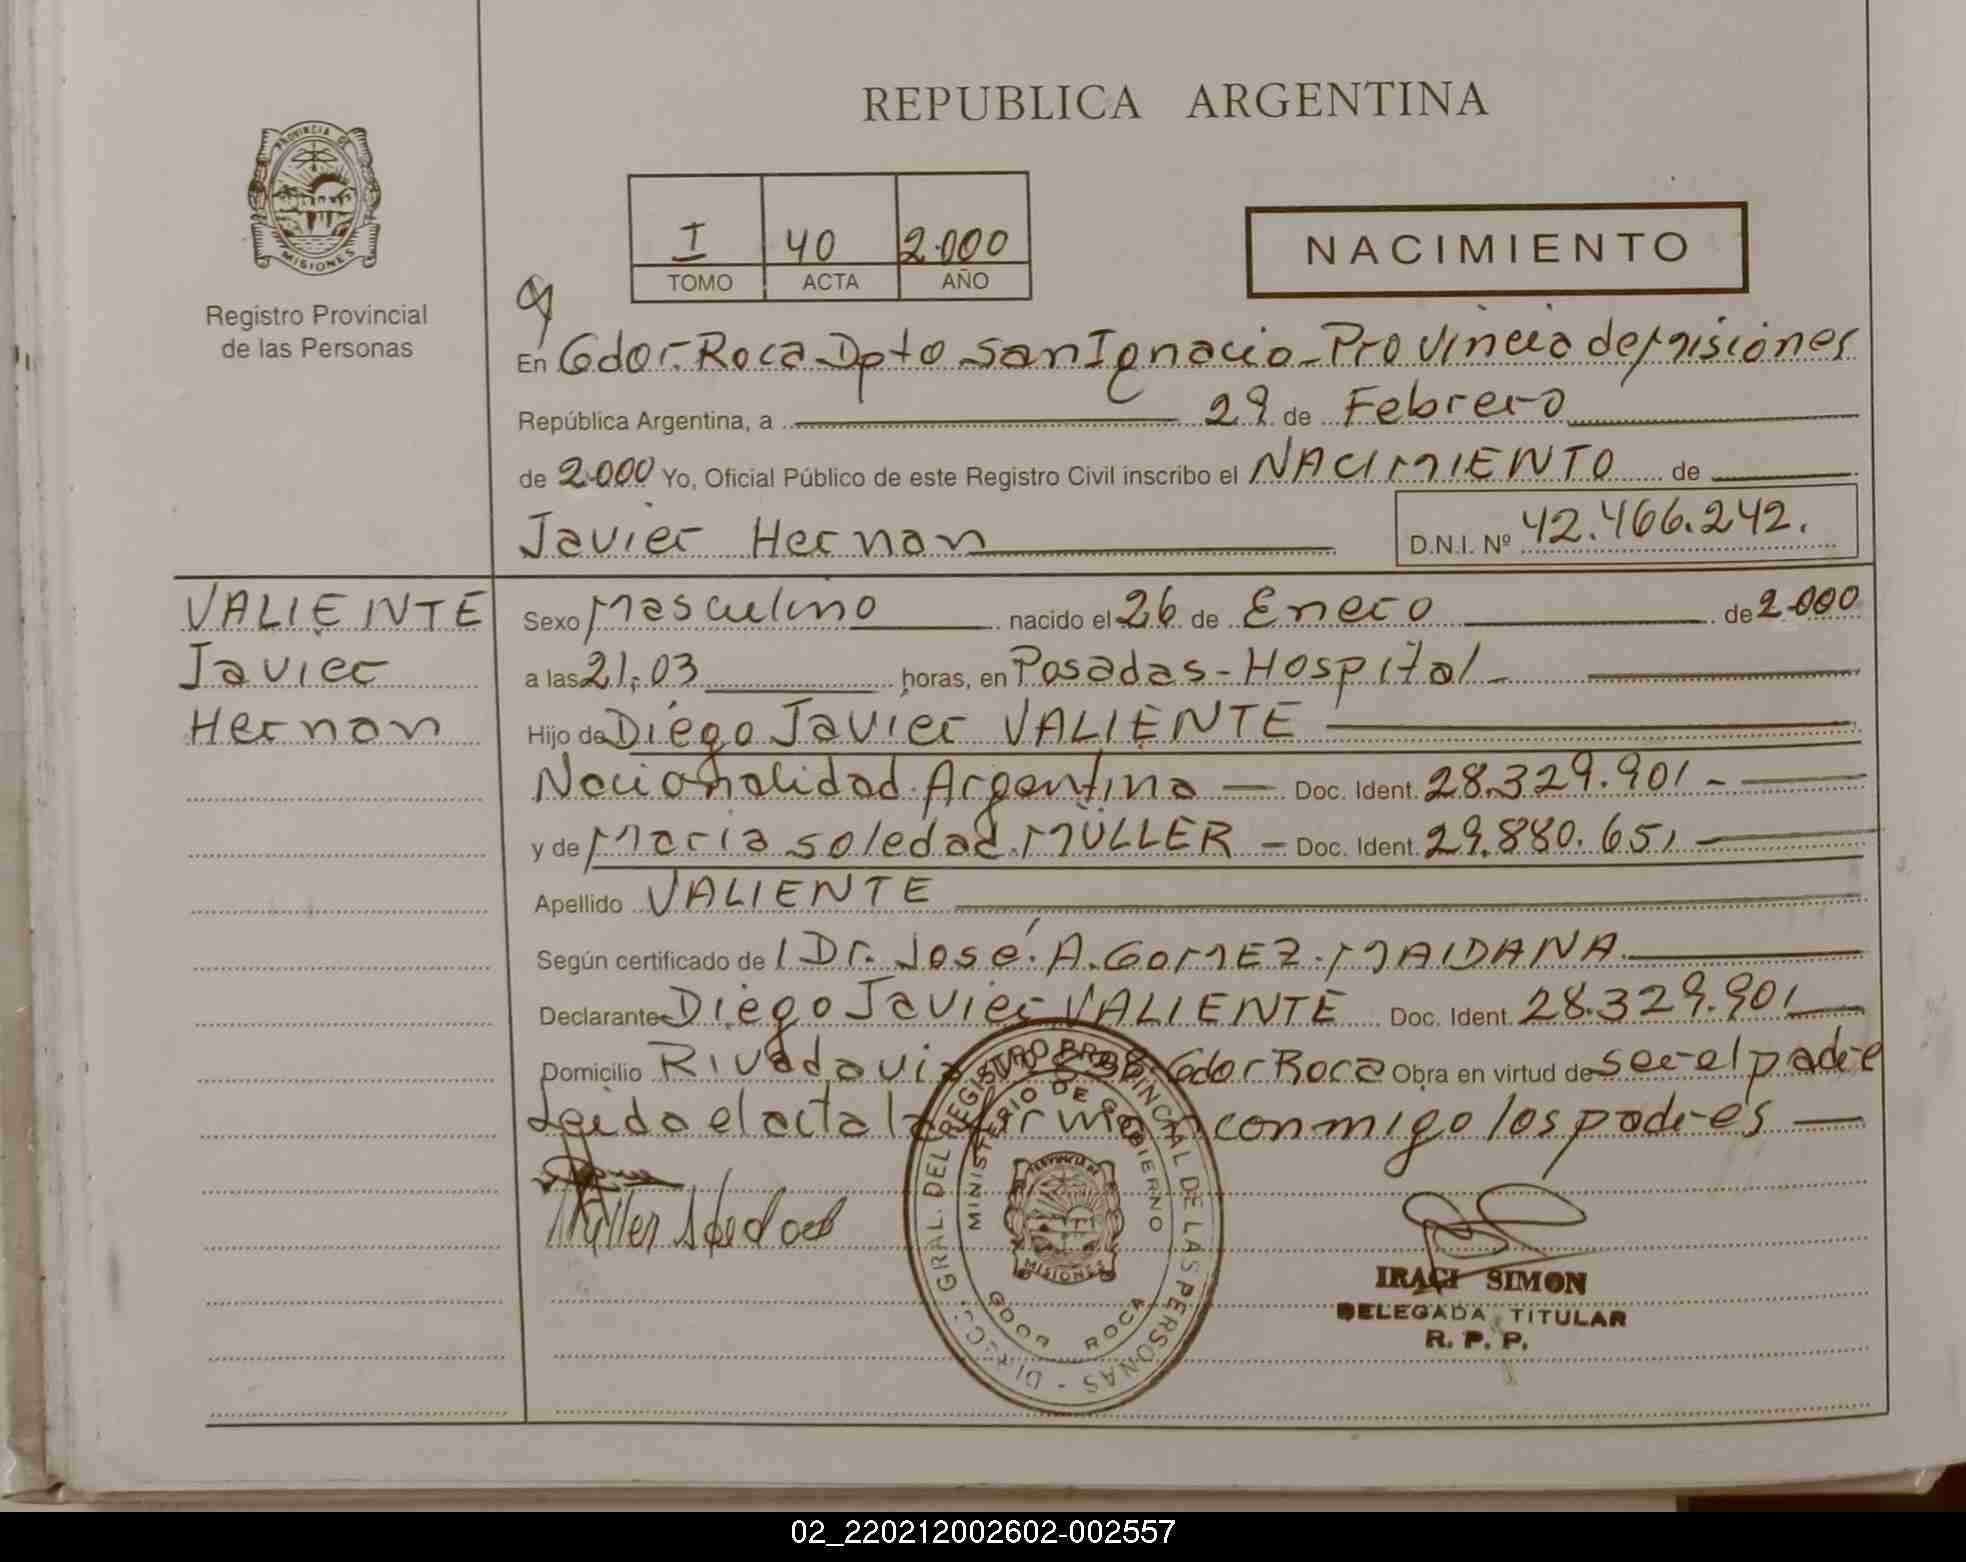 REPUBLICA ARGENTINA
PROVINCIA DE
MISIONES
Registro Provincial
de las Personas
I 40 2.000
TOMO ACTA AÑO
NACIMIENTO
En Gdor. Roca Dpto San Ignacio - Provincia de Misiones
República Argentina, a 29 de Febrero
de 2.000 Yo, Oficial Público de este Registro Civil inscribo el NACIMIENTO de
Javier Hernan D.N.I. Nº 42.466.242.
VALIENTE
Javier
Hernan
Sexo Masculino nacido el 26 de Enero de 2.000
a las 21:03 horas, en Posadas - Hospital -
Hijo de Diego Javier VALIENTE
Nacionalidad Argentina - Doc. Ident. 28.329.901 -
y de Maria Soledad MÜLLER - Doc. Ident. 29.880.651
Apellido VALIENTE
Según certificado de / Dr. José A. GOMEZ MAIDANA
Declarante Diego Javier VALIENTE Doc. Ident. 28.329.901
Domicilio Rivadavia Gdor Roca Obra en virtud de ser el padre
Leida el acta la firman conmigo los padres
Müller Soledad
DIREC. GRAL. DEL REGISTRO PROVINCIAL DE LAS PERSONAS -
MINISTERIO DE GOBIERNO
PROVINCIA DE
MISIONES
GDOR ROCA
IRACI SIMON
DELEGADA TITULAR
R. P. P.
02_220212002602-002557